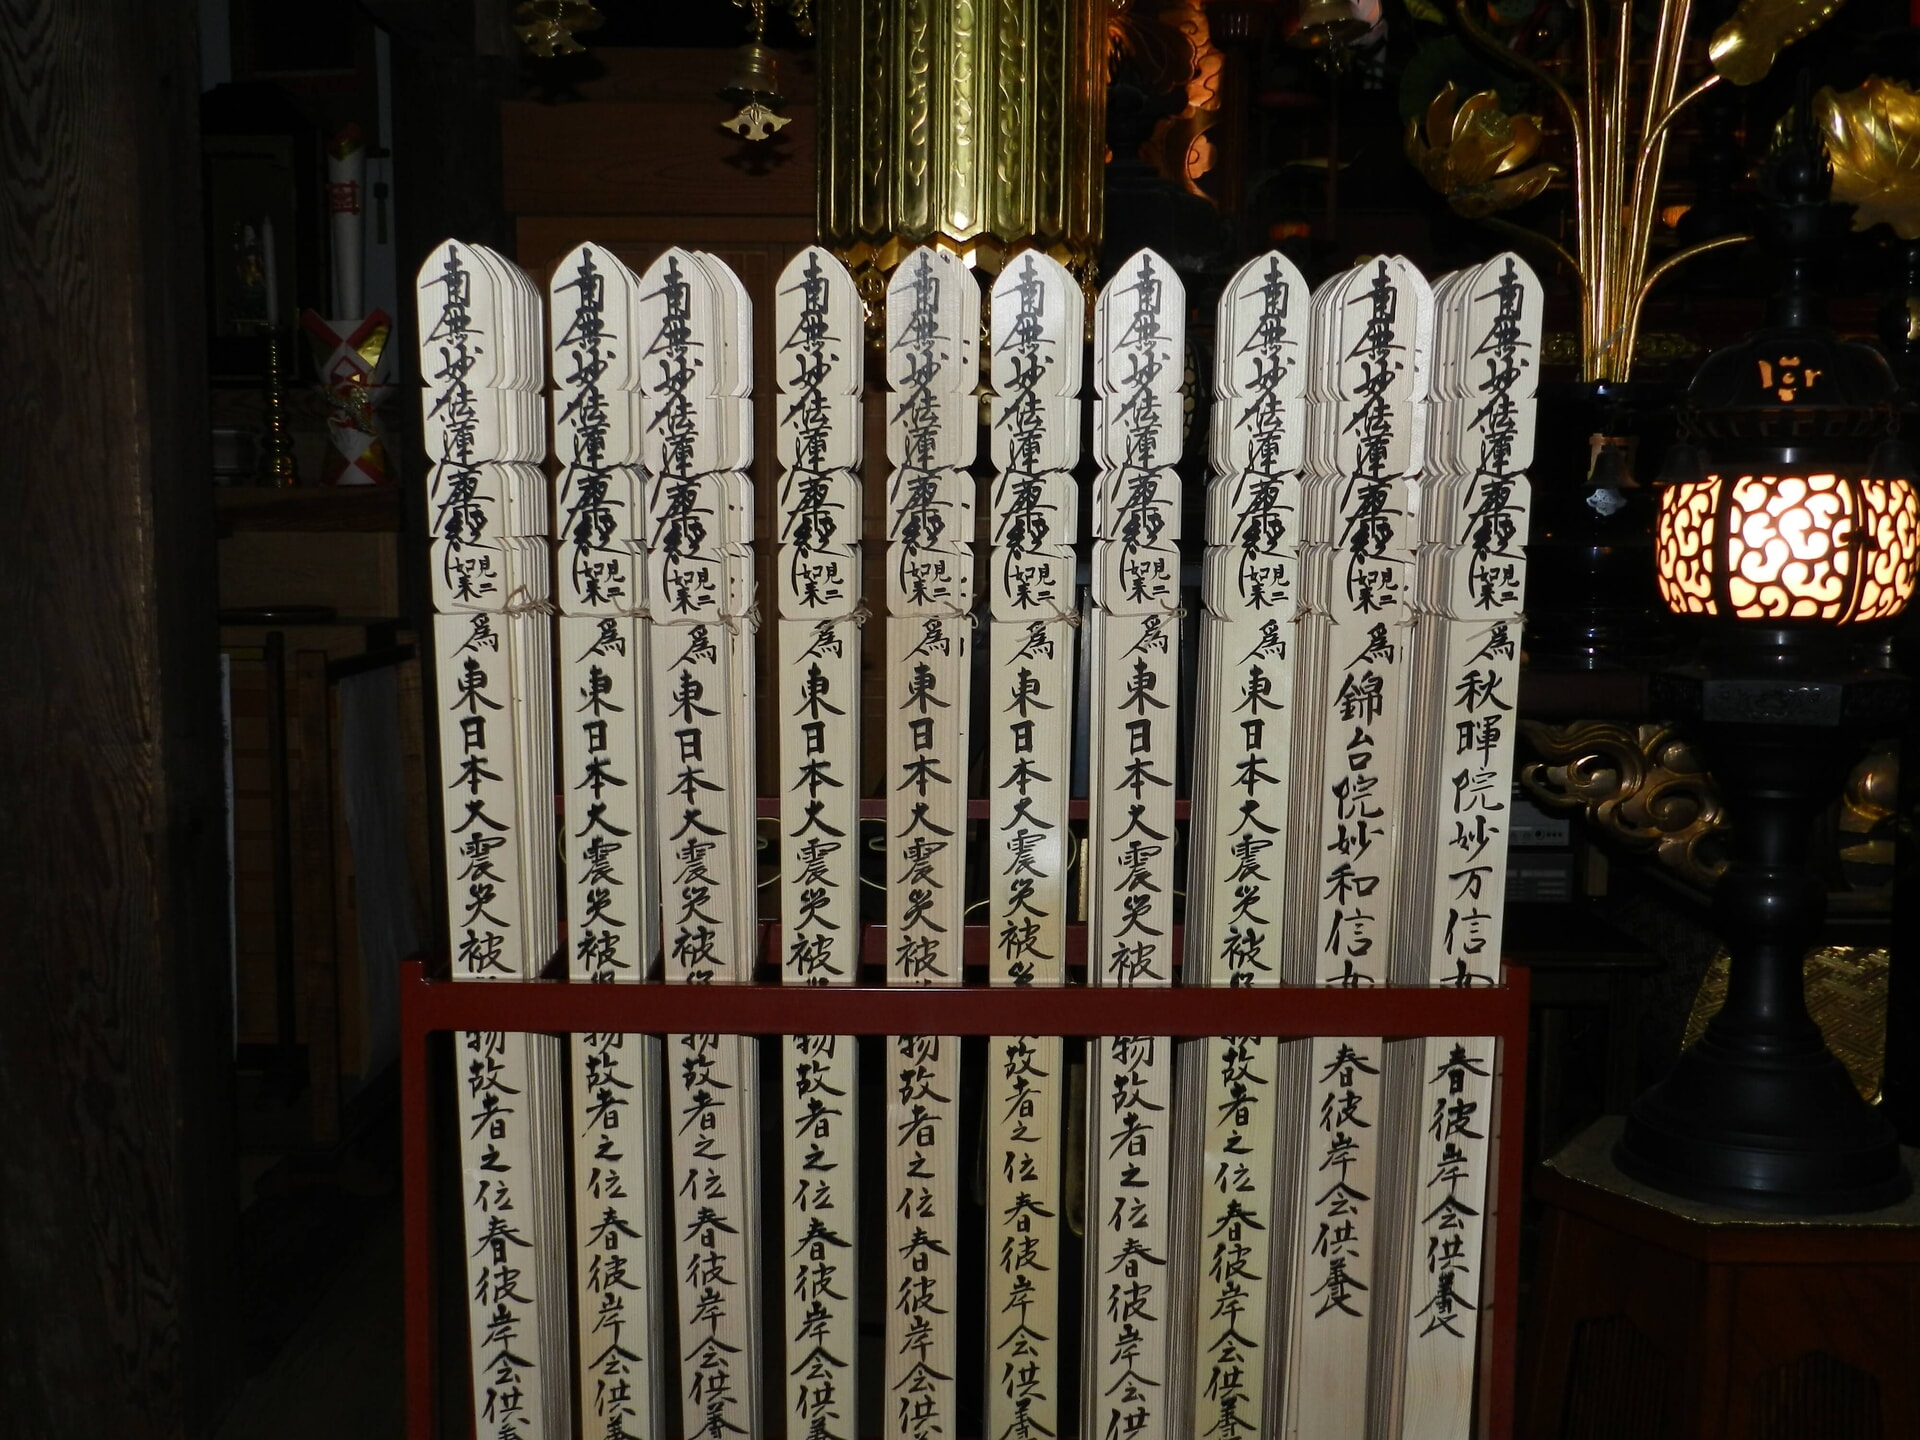 南無妙法蓮華經見二如来爲秋暉院妙万信女春彼岸会供養
南無妙法蓮華經見二如来爲錦台院妙和信女春彼岸会供養
南無妙法蓮華經見二如来爲東日本大震災被災物故者之位春彼岸会供養
南無妙法蓮華經見二如来爲東日本大震災被物故者之位春彼岸会供
南無妙法蓮華經見二如来爲東日本大震災被災故者之位春彼岸会供養
南無妙法蓮華經見二如来爲東日本大震災被物故者之位春彼岸会供
南無妙法蓮華經見二如来爲東日本大震災被物故者之位春彼岸会供養
南無妙法蓮華經見二如来爲東日本大震災被災物故者之位春彼岸会供養
南無妙法蓮華經見二如来爲東日本大震災被災物故者之位春彼岸会供養
南無妙法蓮華經見二如来爲東日本大震災被物故者之位春彼岸会供養